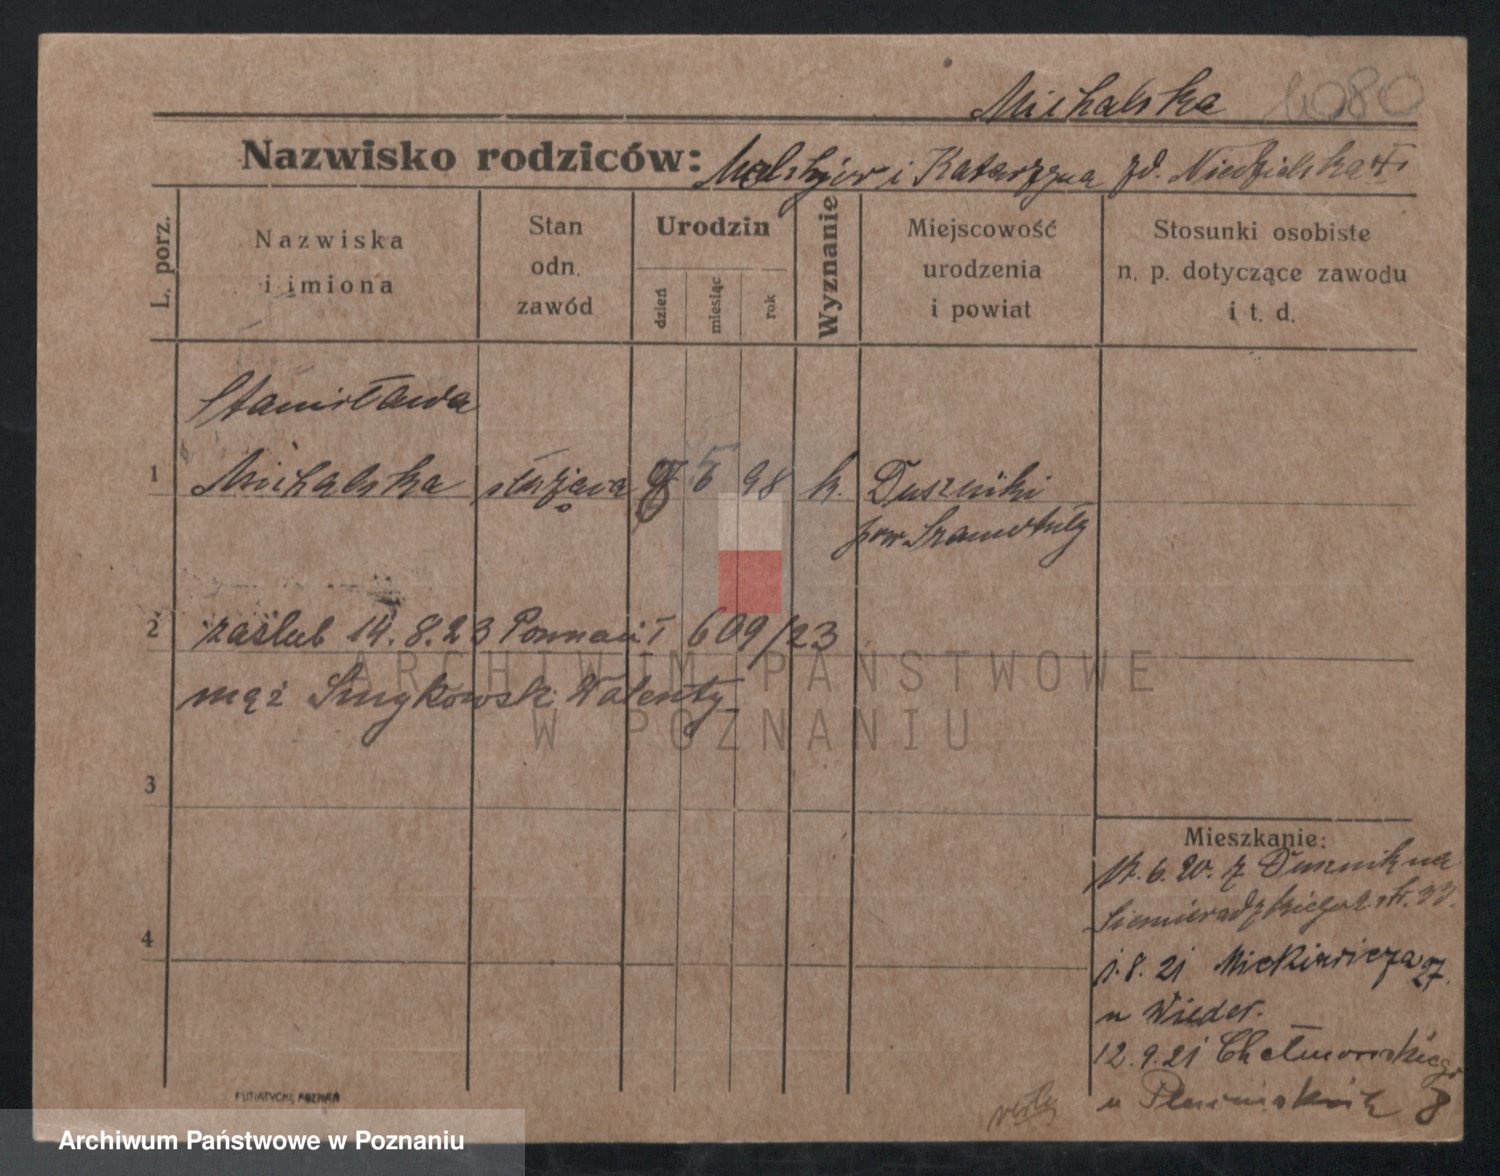 Michalska 6080
Nazwisko rodziców: Melchjor i Katarzyna zd. Niedzielska
L. porz.
Nazwiska
i imiona
Stan
odn.
zawód
Urodzin
dzień
miesiąc
rok
Wyznanie
Miejscowość
urodzenia
i powiat
Stosunki osobiste
n. p. dotyczące zawodu
i t. d.
Stanisława
1 Michalska służąca 5 98 k. Duszniki
pow. Szamotuły
2 zaślub 14.8.23 Poznań I 609/23
mąż Smykowski Walenty
3
4
Mieszkanie:
6.20. z Dusznik na
Siemieradzkiego 33.
1.8.21 Mickiewicza 27.
u Wieder.
12.9.21 Chełmońskiego
u 8
PUTIATYCKI, POZNAŃ
ARCHIWUM PAŃSTWOWE
W POZNANIU
Archiwum Państwowe w Poznaniu